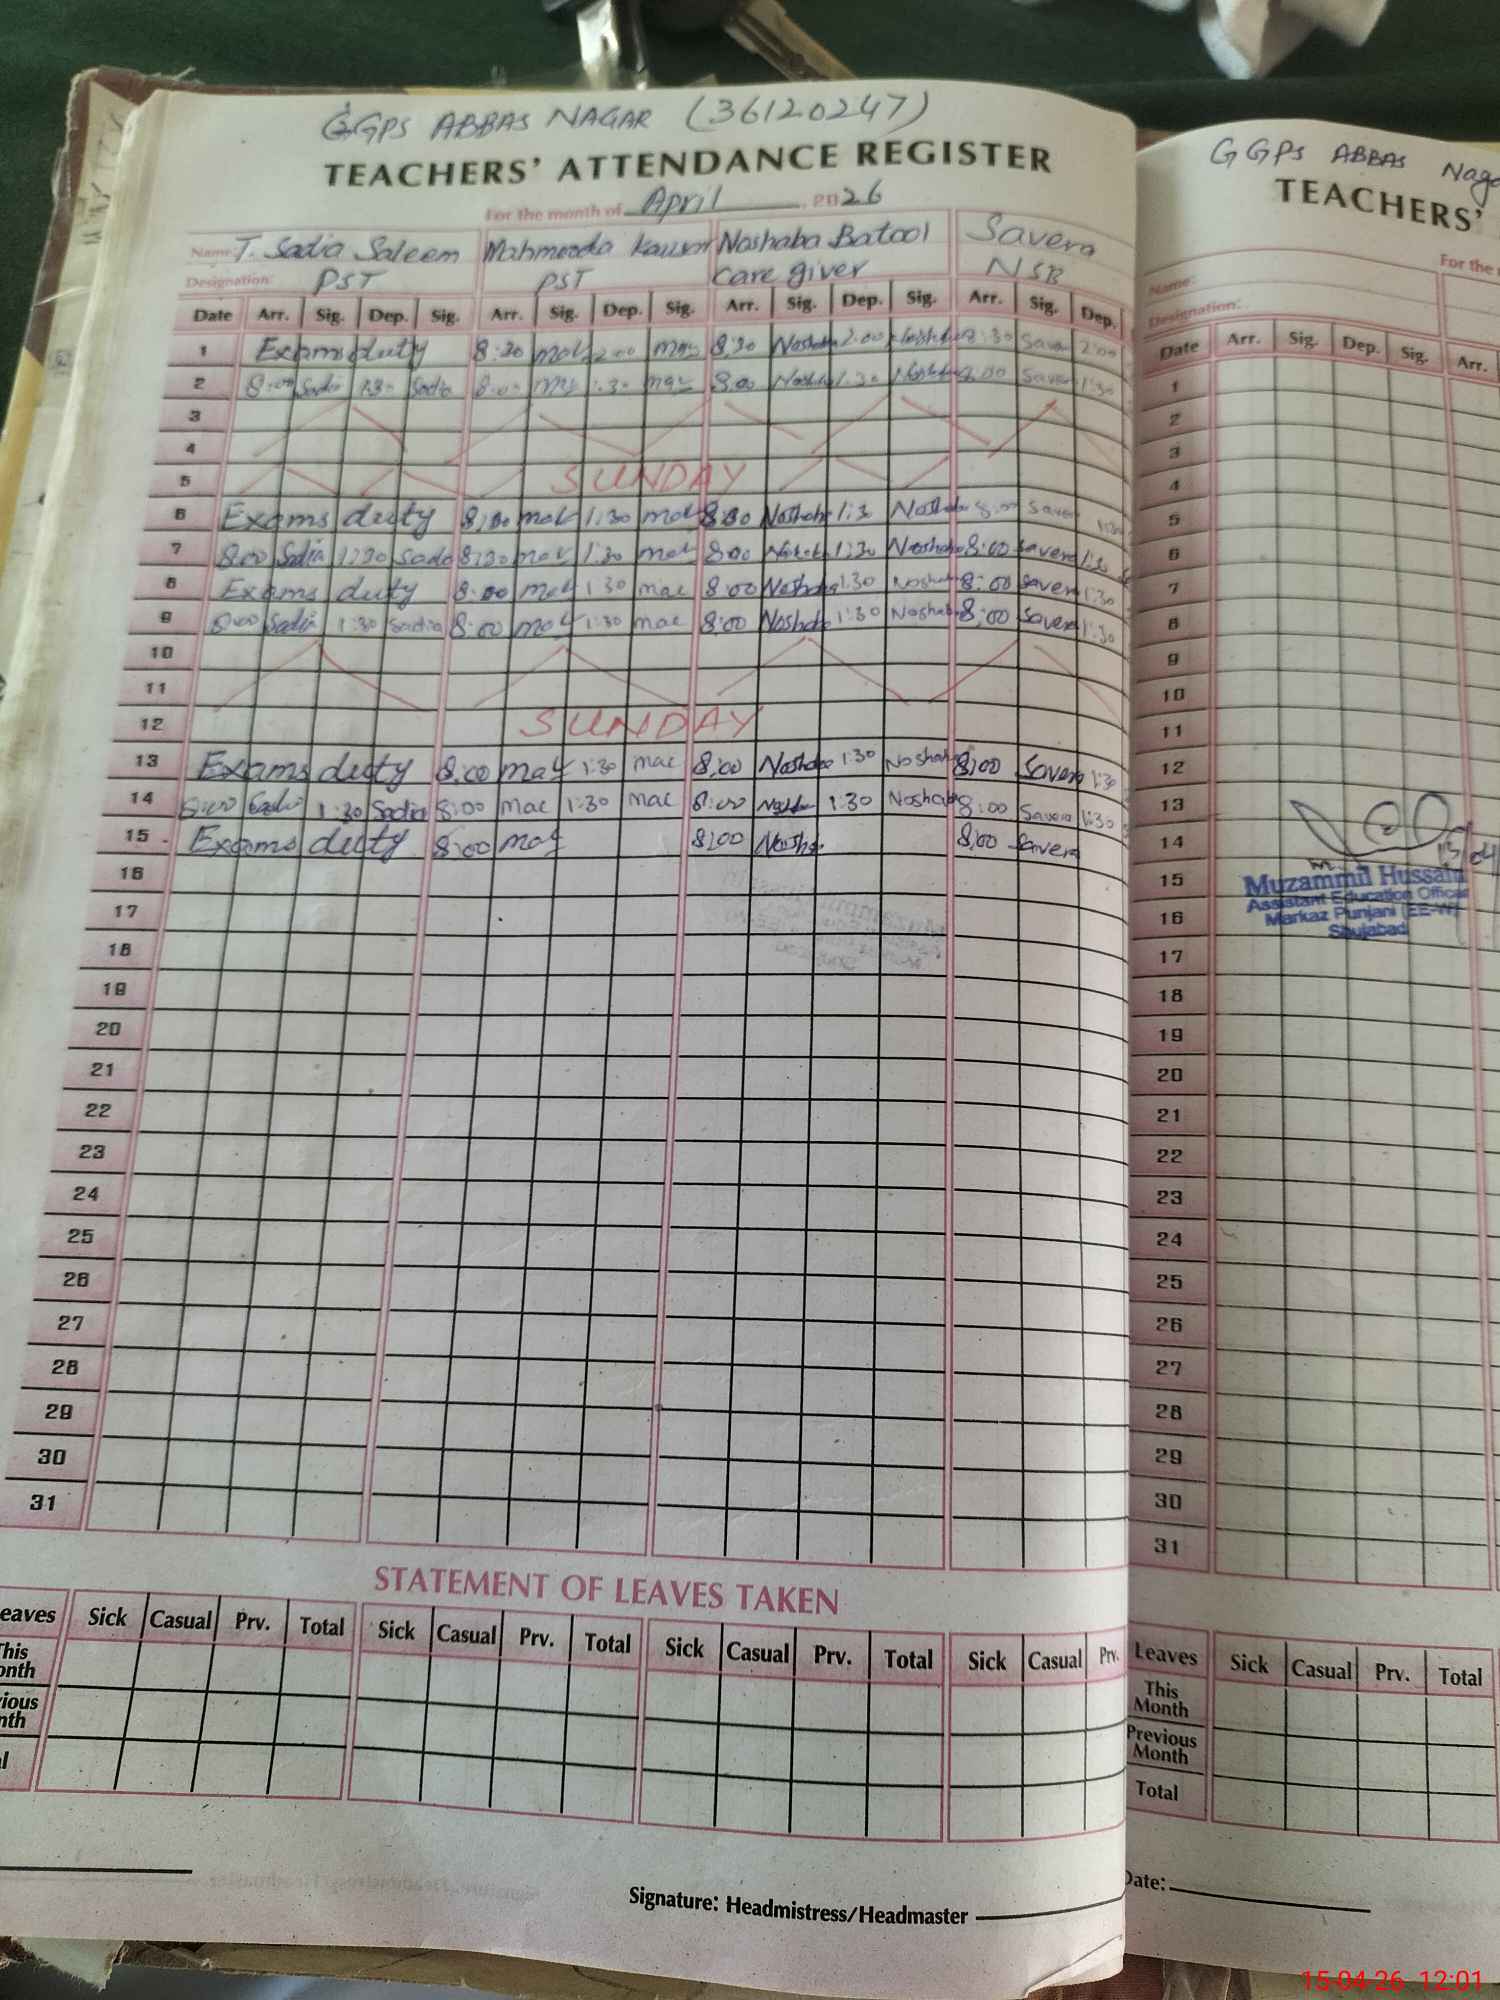 GGPS ABBAS NAGAR (36120247)
TEACHERS' ATTENDANCE REGISTER
For the month of April, 2026
Name: T. Sadia Saleem Mahmooda Kausar Noshaba Batool Savera
Designation: PST PST Care giver NSB
Date Arr. Sig. Dep. Sig. Arr. Sig. Dep. Sig. Arr. Sig. Dep. Sig. Arr. Sig. Dep.
1 Exams duty 8:30 2:00 8:30 Noshaba 2:00 Noshaba 8:30 Savera 2:00
2 8:00 Sadia 1:30 Sadia 8:00 1:30 8:00 Noshaba 1:30 Noshaba 8:00 Savera 1:30
3
4
5 SUNDAY
6 Exams duty 8:00 1:30 8:00 Noshaba 1:3 Noshaba Savera 1:30
7 8:00 Sadia 1:30 Sadia 8:00 1:30 8:00 1:30 Noshaba 8:00 Savera 1:30
8 Exams duty 8:00 1:30 8:00 Noshaba 1:30 Noshaba 8:00 Savera 1:30
9 8:00 Sadia 1:30 Sadia 8:00 1:30 8:00 Noshaba 1:30 Noshaba 8:00 Savera 1:30
10
11
12 SUNDAY
13 Exams duty 8:00 1:30 8:00 Noshaba 1:30 Noshaba 8:00 Savera 1:30
14 8:00 Sadia 1:30 Sadia 8:00 1:30 8:00 1:30 Noshaba 8:00 Savera 1:30
15 Exams duty 8:00 8:00 Nosha 8:00 Savera
16
17
18
19
20
21
22
23
24
25
26
27
28
29
30
31
STATEMENT OF LEAVES TAKEN
eaves Sick Casual Prv. Total Sick Casual Prv. Total Sick Casual Prv. Total Sick Casual Prv.
This
onth
ious
nth
al
Signature: Headmistress/Headmaster
GGPS ABBAS Naga
TEACHERS'
For the
Name:
Designation:
Date Arr. Sig. Dep. Sig. Arr.
1
2
3
4
5
6
7
8
9
10
11
12
13
14
15
16
17
18
19
20
21
22
23
24
25
26
27
28
29
30
31
Muzammil Hussain
Assistant Education Officer
Markaz Punjani (EE-W)
Shujabad
Leaves Sick Casual Prv. Total
This
Month
Previous
Month
Total
Date:
15-04-26 12:01